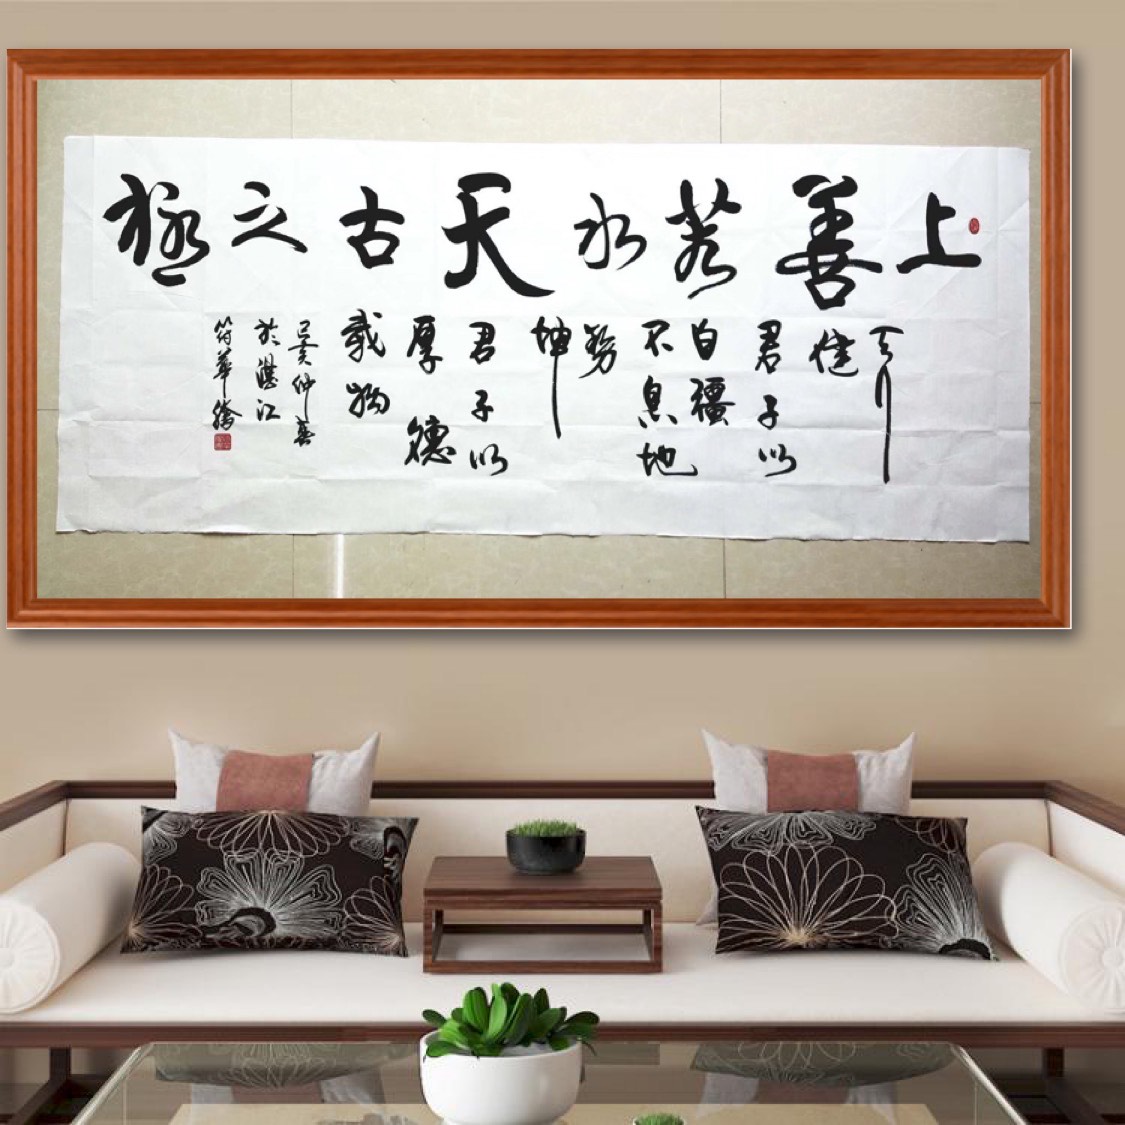 上善若水天古之極
天行
健
君子以
自疆
不息地
势
坤
君子以
厚德
載物
己亥仲春
於湛江
符華騰